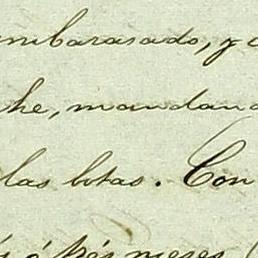 embarasado, y
che, mandand
las botas. Con
ó trés meses